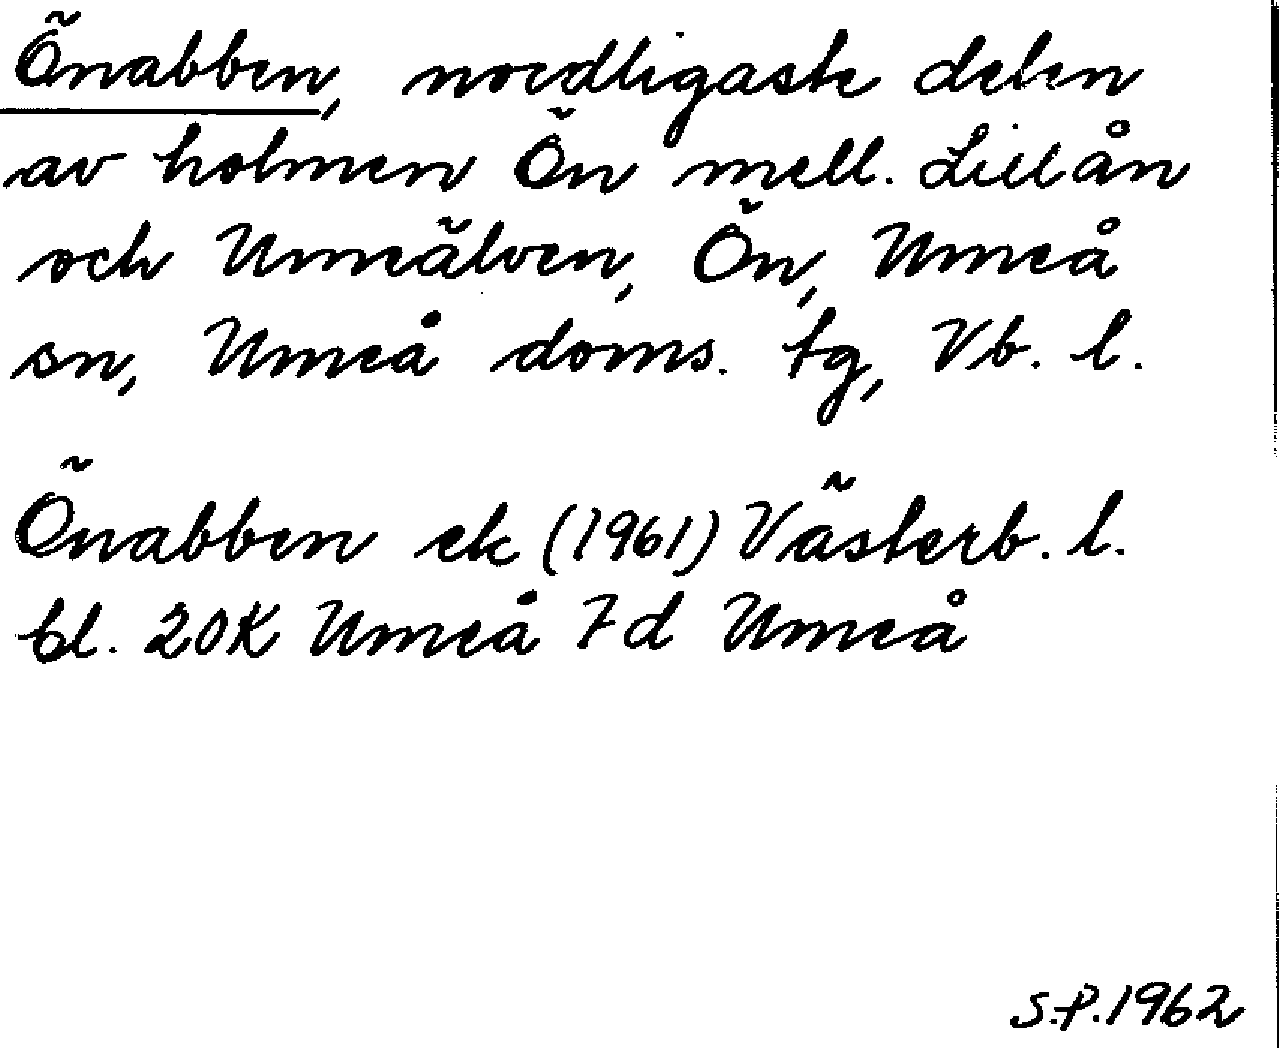 Önabben, nordligaste delen
av holmen Ön mell. Lillån
och Umeälven, Ön, Umeå
sn, Umeå doms. tg, Vb. l.
Önabben ek (1961) Västerb. l.
bl. 20K Umeå 7d Umeå
S.P. 1962